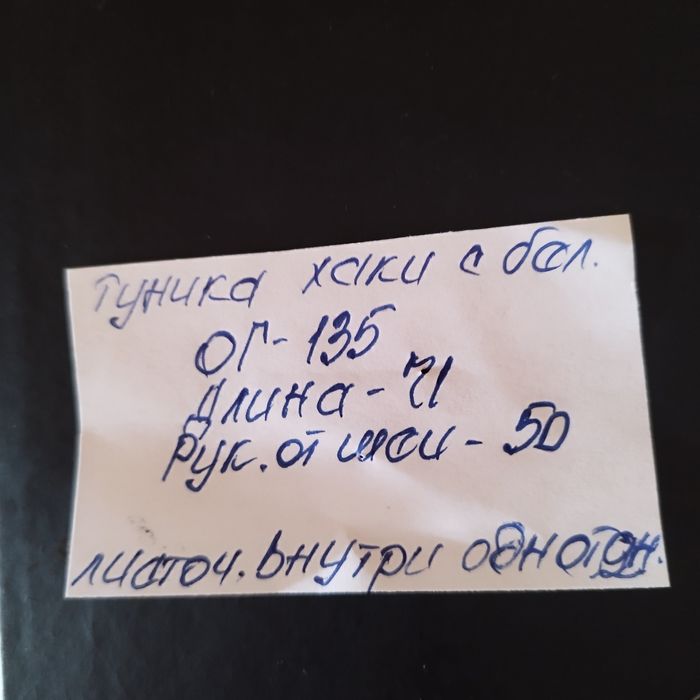 туника хаки с бал.
ОГ- 135
Длина - 71
Рук. от шеи - 50
листоч. внутри однотон.